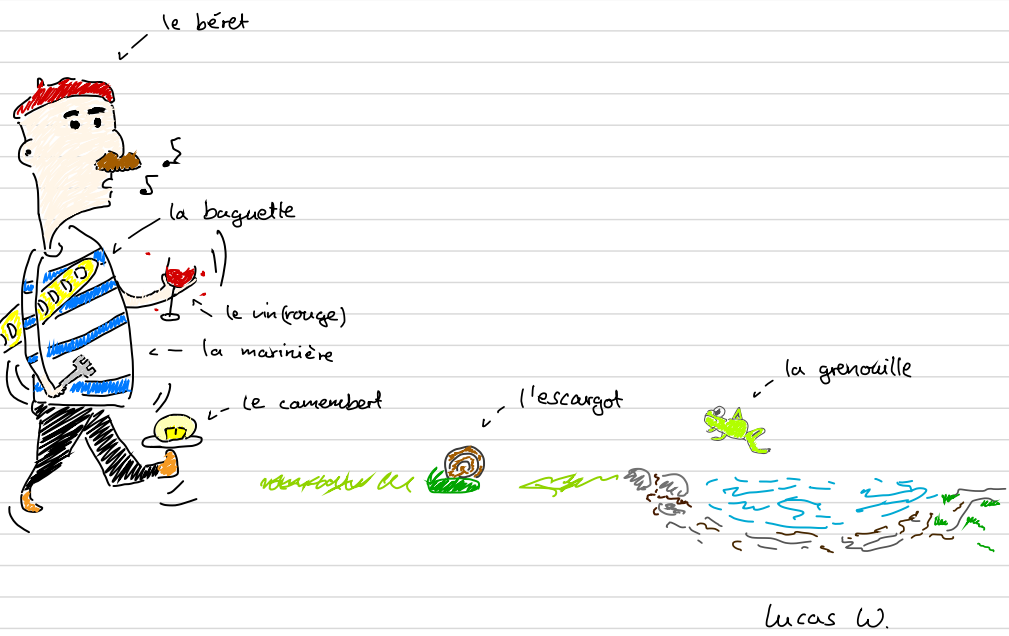 le béret
la baguette
le vin (rouge)
la marinière
la grenouille
le camembert
l'escargot
Lucas W.